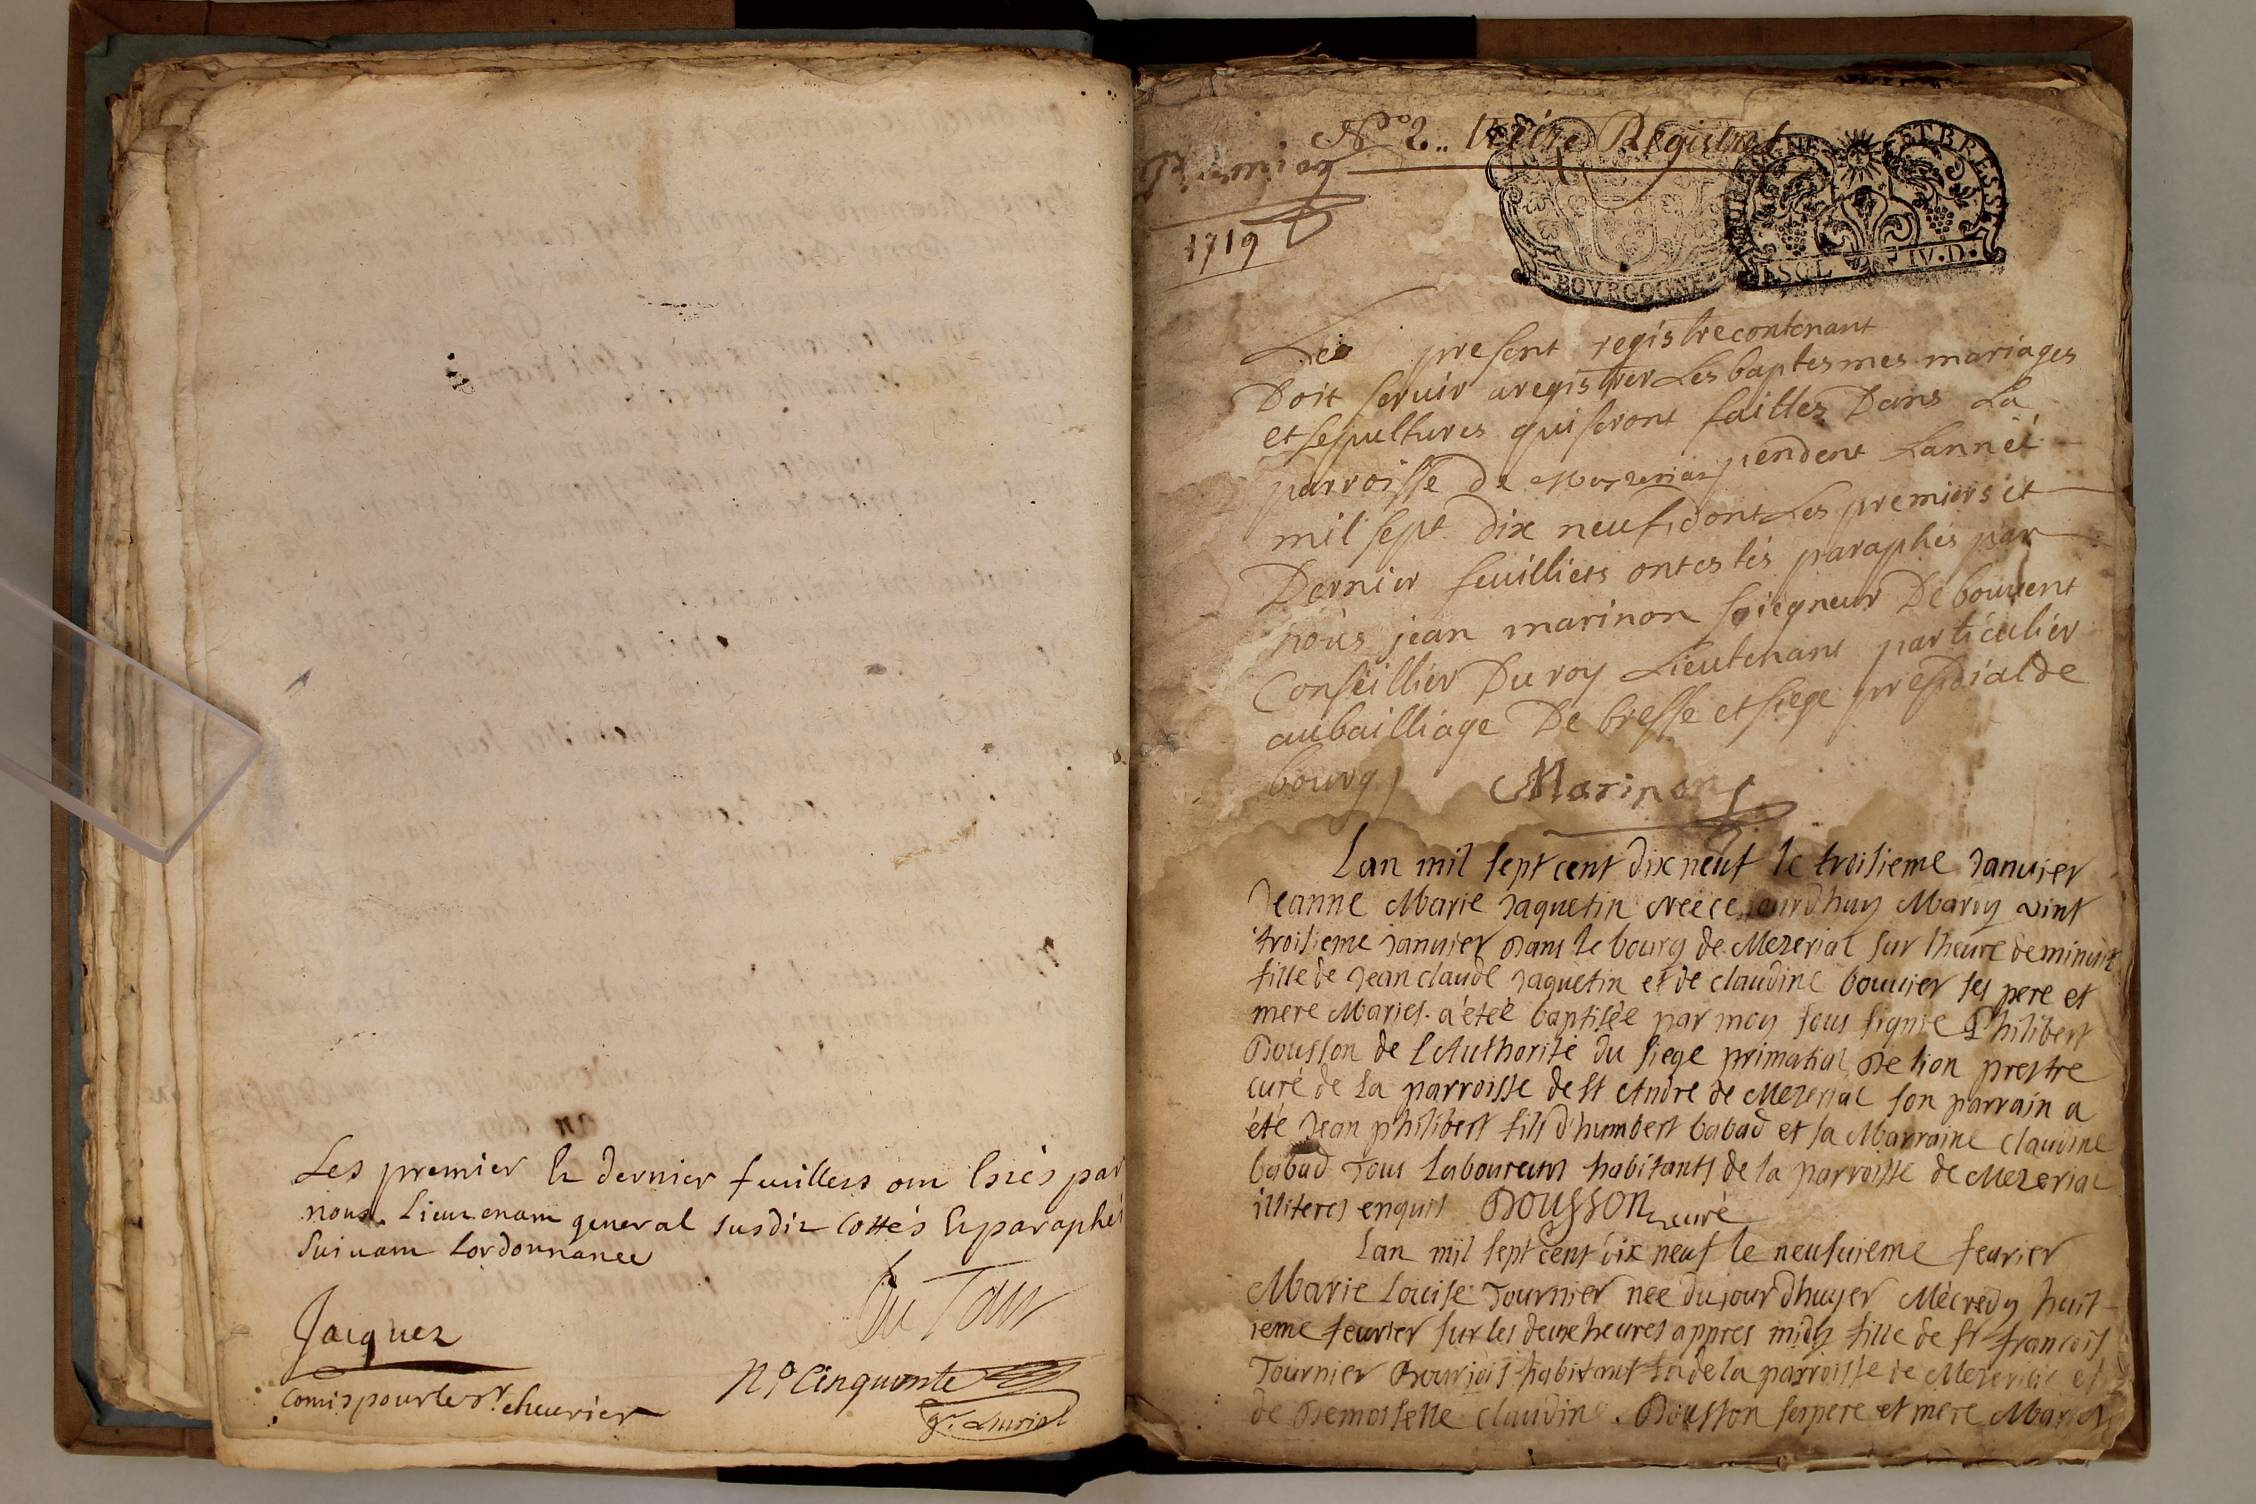 Les premier & dernier feuillets ont estés par
nous Lieutenant general susdit cottés & paraphés
suivant Lordonnance
Jacquet
Comis pour le Sr. cheurier
N.º Cinquante
Nº 2.. Registre
Premier
1719
BOVRGOGNE
ET BRESSE
SOL IV.D.
Le present registre contenant
Doit servir a registrer Les baptesmes mariages
et sepultures qui seront faittes Dans La
parroisse De Mezeriat pendent Lanneé
mil sept dix neuf, dont Les premiers et
Dernier feuilliets ont estés paraphés par
nous jean marinon seiegneur De bouuent
Conseillier Du roy Lieutenant particulier
au bailliage De bresse et siege presidial de
bourg
Marinon
Lan mil sept cent dix neuf le troisieme Januier
Jeanne Marie Jaquetin Neéè ce jourdhuy Mardy vint
troisieme Januier Dans le bourg de Mezeriat sur lheure de minuit
fille de Jean claude Jaquetin et de claudine bouuier ses pere et
mere Mariés. a éteé baptiseé par moy sous signé Philibert
Dousson de l'Authorité du siege primatial De lion prestre
curé de La parroisse de st Andre de Mezeriat son parrain a
été Jean philibert fils d'humbert babad et sa Marraine claudine
babad Tous Laboureurs habitants de la parroisse de Mezeriat
illiterés enquis DOUSSON curé
Lan mil sept cent dix neuf le neufuieme feurier
Marie Louise Tournier neé du jourdhuyer Mécredy huit-
ieme feurier sur les deux heures appres midy fille de sr francois
Tournier Bourjois habitant de la parroisse de Mezeriat et
de Demoiselle claudine Dousson ses pere et mere Mariés